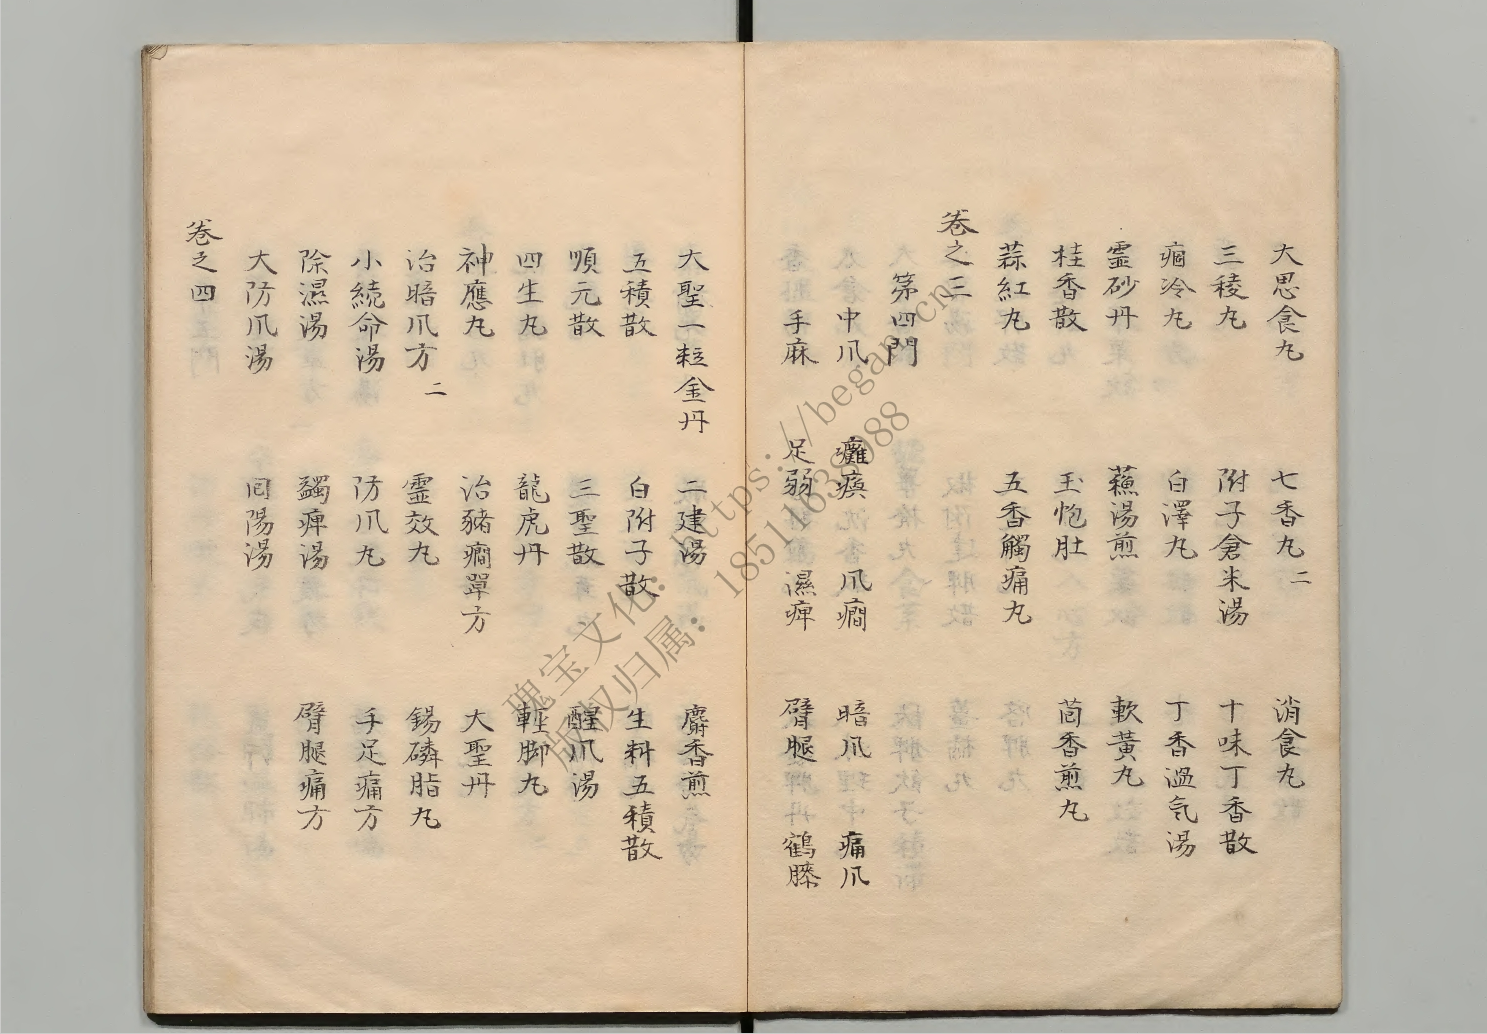 大思食丸 七香丸二 消食丸
三稜丸 附子倉米湯 十味丁香散
痼冷丸 白澤丸 丁香温気湯
霊砂丹 蘓湯煎 軟黄丸
桂香散 玉㽱肚 茴香煎丸
蒜紅丸 五香觸痛丸
卷之三
第四門
中爪 癱瘓 爪癇 暗爪 痛爪
手麻 足弱 濕痺 臂腿 鶴膝
大聖一粒金丹 二建湯 麝香煎
五積散 白附子散 生料五積散
順元散 三聖散 醒爪湯
四生丸 龍虎丹 輕脚丸
神應丸 治豬癇單方 大聖丹
治暗爪方二 霊效丸 錫磷脂丸
小続命湯 防爪丸 手足痛方
除濕湯 蠲痺湯 臂腿痛方
大防爪湯 囘陽湯
卷之四
瑰宝文化：https://began.cn
版权归属：18511638988